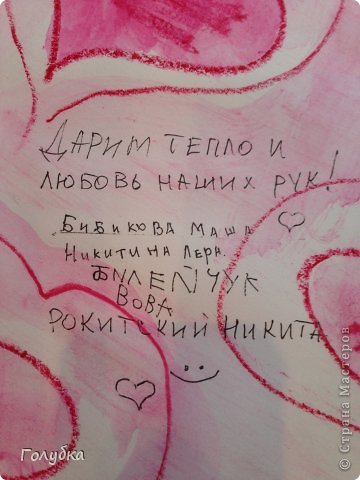 ДАРИМ ТЕПЛО И
ЛЮБОВЬ НАШИХ РУК!
БИБИКОВА МАША
НИКИТИНА ЛЕРА.
БУЛЕЙЧУК
ВОВА
РОКИТСКИЙ НИКИТА
Голубка
© Страна Мастеров